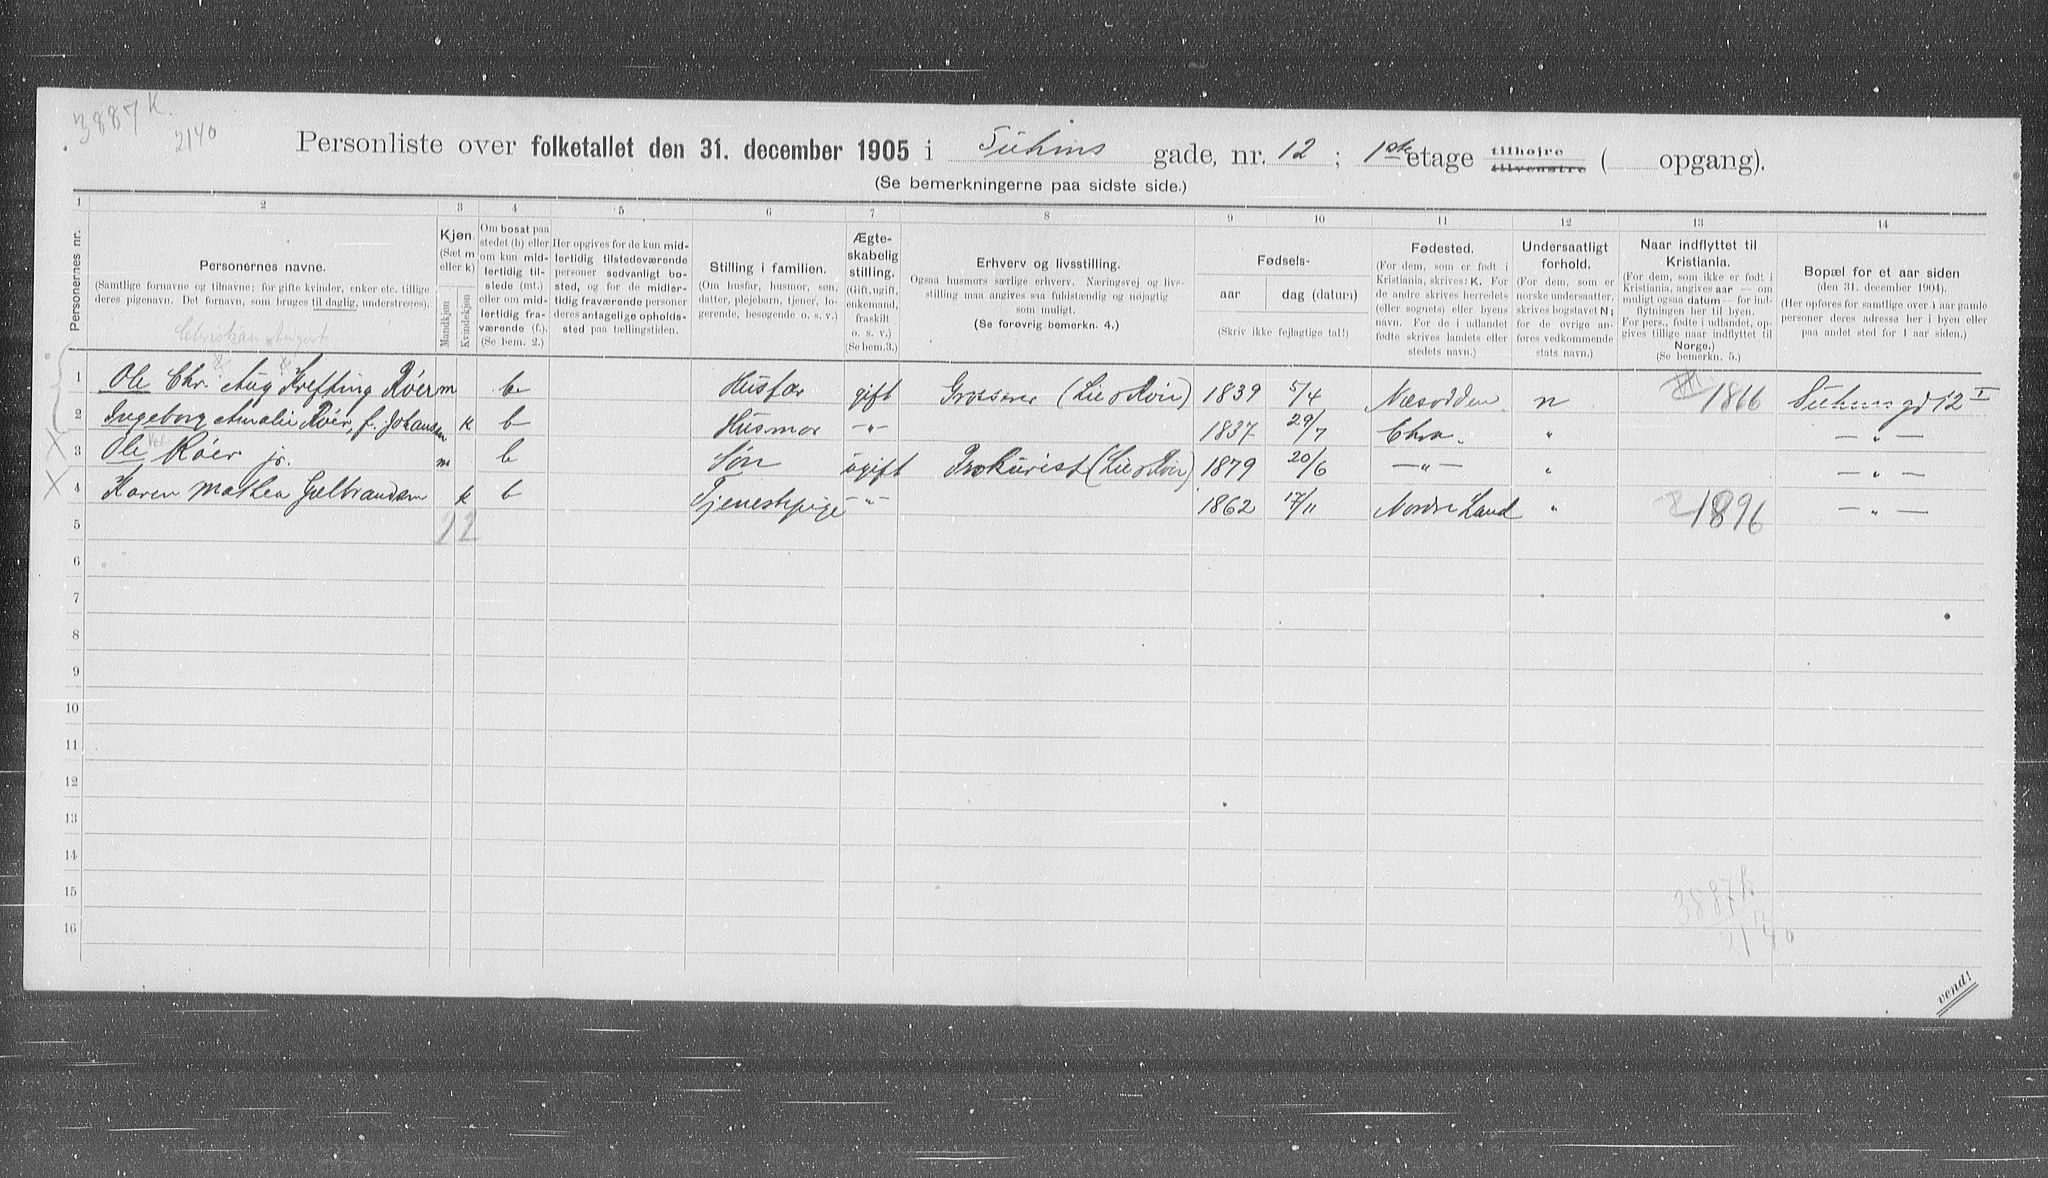 3887 K.
2140
Personliste over folketallet den 31. december 1905 i Suhms gade, nr. 12 ; 1ste etage tilhøjre tilvenstre ( opgang).
(Se bemerkningerne paa sidste side.)
1 2 3 4 5 6 7 8 9 10 11 12 13 14
Personernes nr.
Personernes navne.
(Samtlige fornavne og tilnavne; for gifte kvinder, enker etc. tillige
deres pigenavn. Det fornavn, som bruges til daglig, understreges).
Kjøn.
(Sæt m
eller k)
Mandkjøn
Kvindekjøn
Om bosat paa
stedet (b) eller
om kun mid-
lertidig til-
stede (mt.)
eller om mid-
lertidig fra-
værende (f.).
(Se bem. 2.)
Her opgives for de kun mid-
lertidig tilstedeværende
personer sedvanligt bo-
sted, og for de midler-
tidig fraværende personer
deres antagelige opholds-
sted paa tællingstiden.
Stilling i familien.
(Om husfar, husmor, søn,
datter, plejebarn, tjener, lo-
gerende, besøgende o. s. v.)
Ægte-
skabelig
stilling.
(Gift, ugift,
enkemand,
fraskilt
o. s. v.)
(Se bem.3.)
Erhverv og livsstilling.
Ogsaa husmors særlige erhverv. Næringsvej og livs-
stilling maa angives saa fuldstændig og nøjagtig
som muligt.
(Se forøvrig bemerkn. 4.)
Fødsels-
aar
dag (datum)
(Skriv ikke fejlagtige tal!)
Fødested.
(For dem, som er født i
Kristiania, skrives: K. For
de andre skrives herredets
(eller sognets) eller byens
navn. For de i udlandet
fødte skrives landets eller
stedets navn.)
Undersaatligt
forhold.
(For dem, som er
norske undersaatter,
skrives bogstavet N;
for de øvrige an-
føres vedkommende
stats navn.)
Naar indflyttet til
Kristiania.
(For dem, som ikke er født i
Kristiania, angives aar — om
muligt ogsaa datum — for ind-
flytningen her til byen.
For pers., fødte i udlandet, op-
gives tillige naar indflyttet til
Norge.)
(Se bemerkn. 5.)
Bopæl for et aar siden
(den 31. december 1904).
(Her opføres for samtlige over 1 aar gamle
personer deres adresse her i byen eller
paa andet sted for 1 aar siden.)
Christian August
1 Ole Chr. Aug. Krefting Röer m b Husfar gift Grosserer (Lie & Röer) 1839 5/4 Næsodden n 1866 Suhms gd 12 I
2 Ingeborg Amalie Röer, f. Johansen k b Husmor -"- 1837 29/7 Chra. " — " —
3 Ole Röer jr. m b Søn ugift Prokurist (Lie & Röer) 1879 20/6 — " — " — " —
4 Karen Mathea Gulbrandsen k b Tjenestepige -"- 1862 17/11 Nordre Land " 1896 — " —
5 1 2
6
7
8
9
10
11
12
13
14
15
16
3887 K
2140
vend!